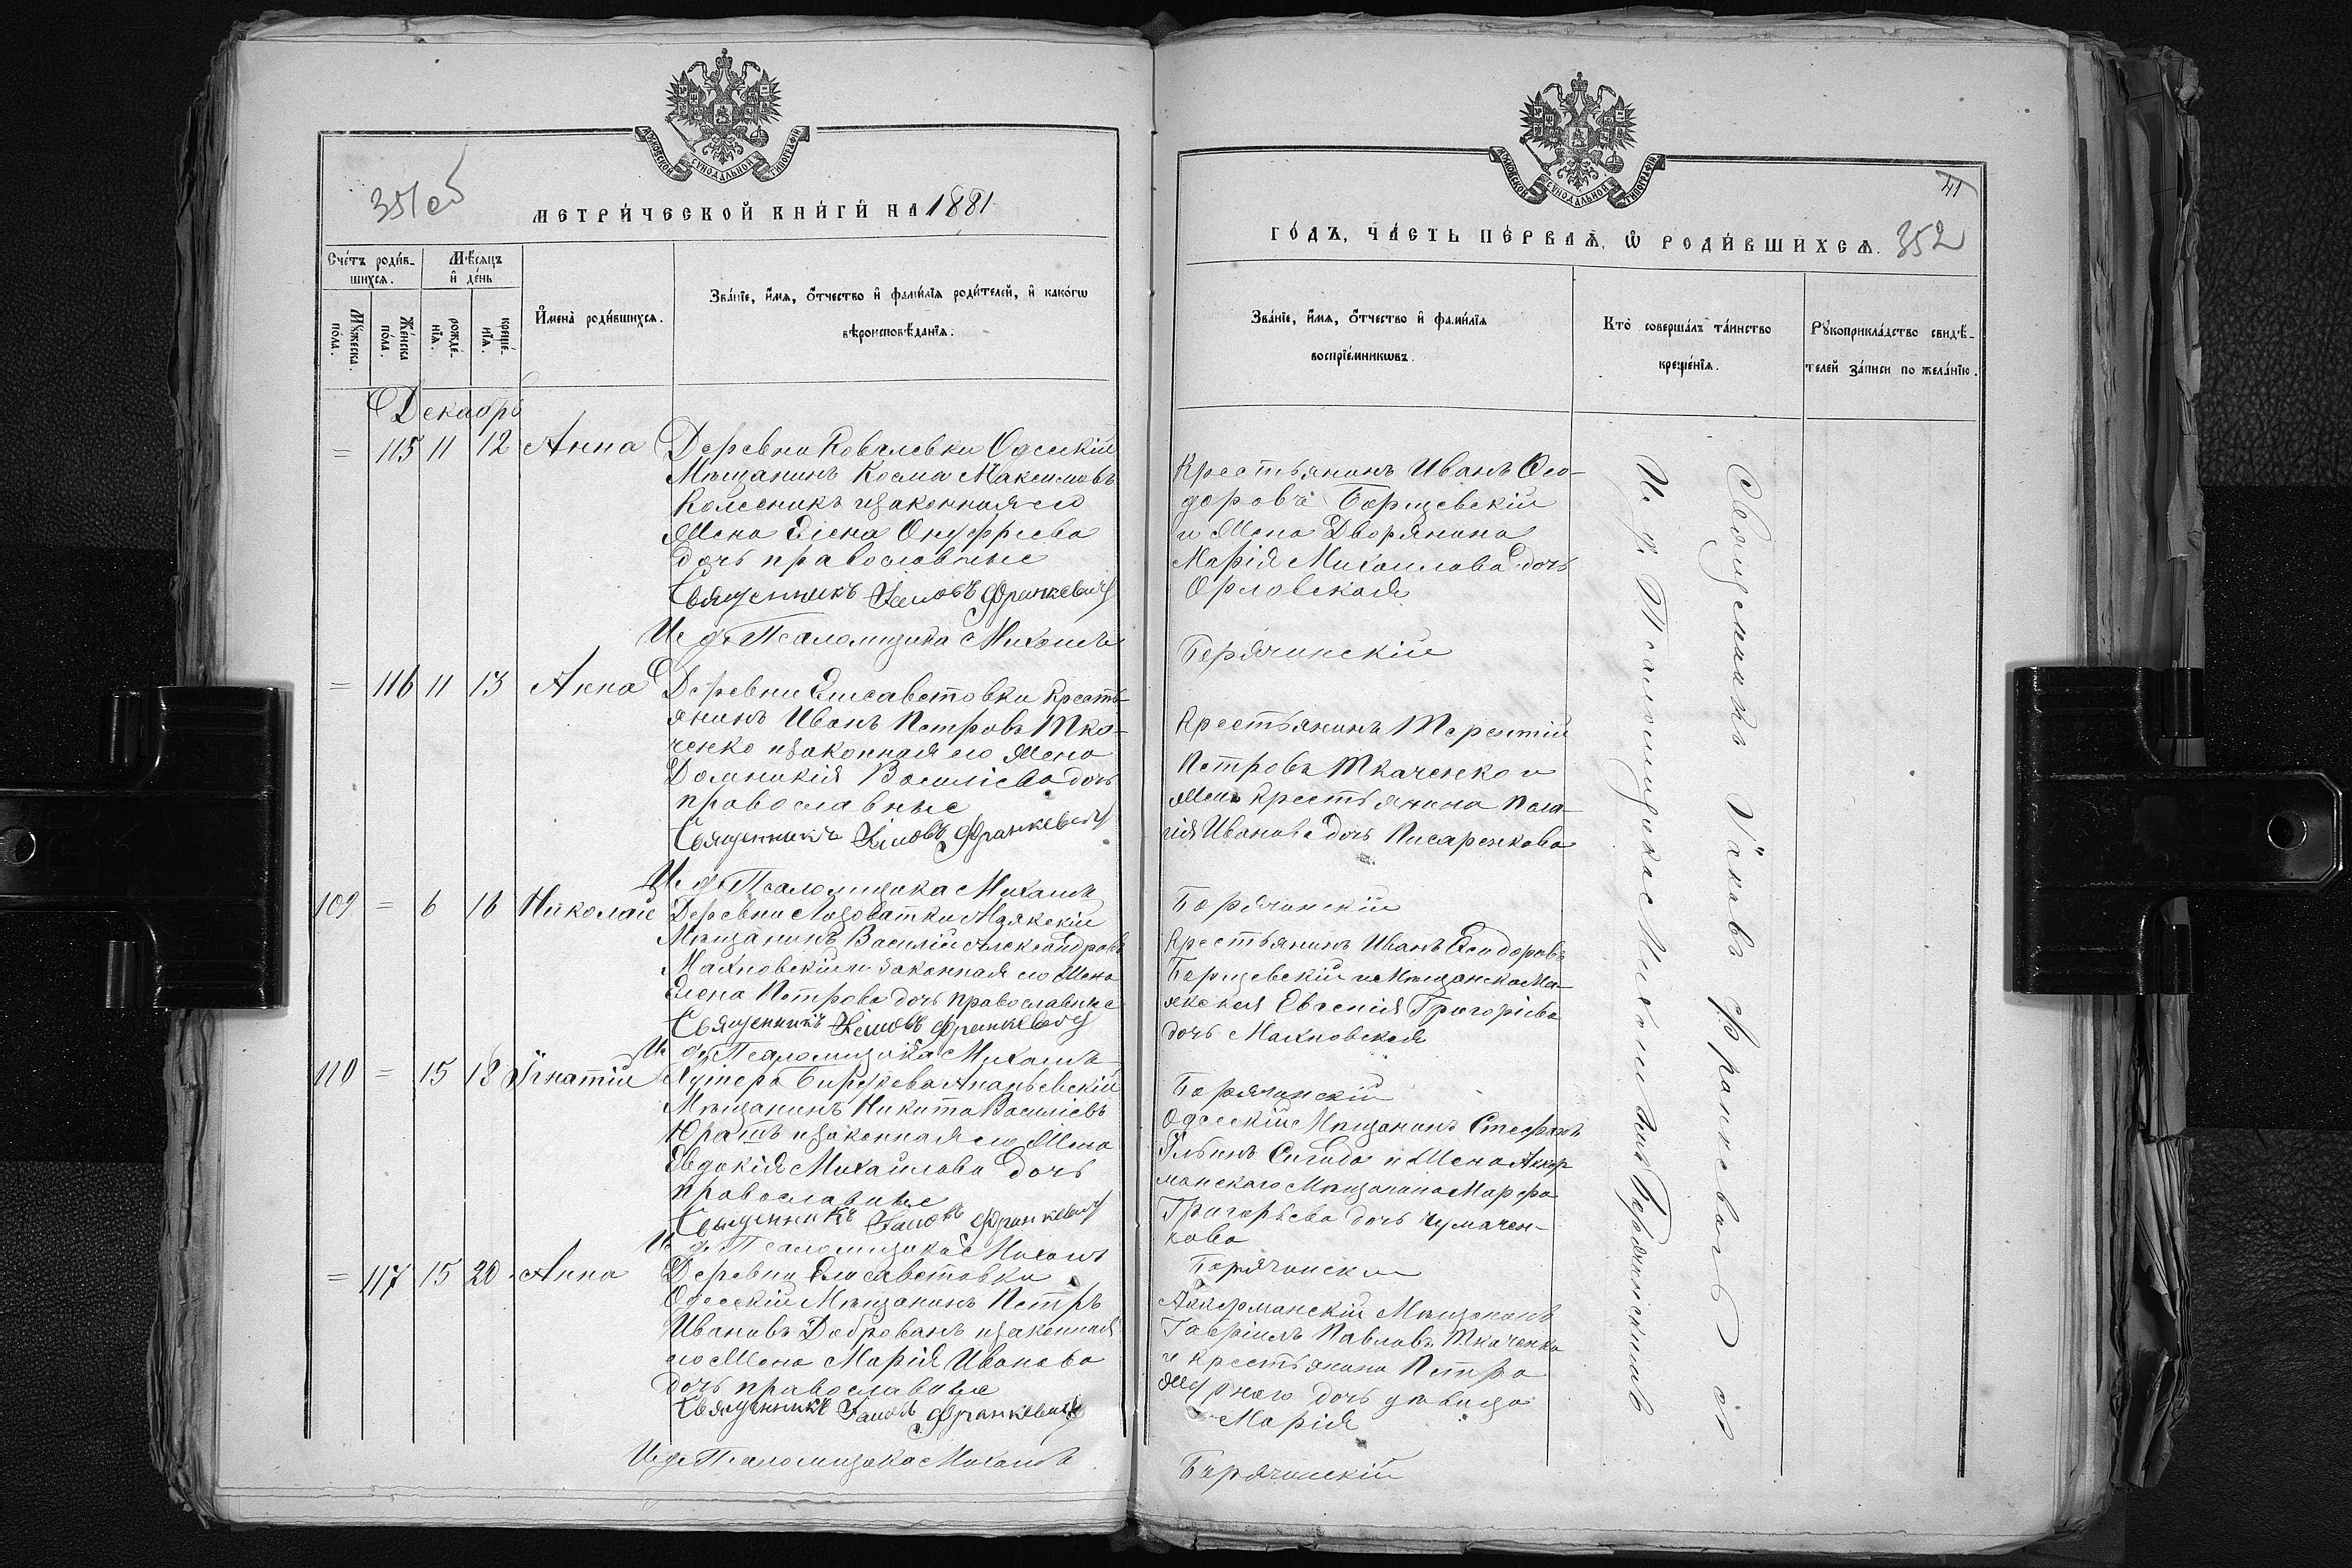 351об
МОСКОВСКОЙ СѴНОДАЛЬНОЙ ТИПОГРАФІИ
МЕТРИ́ЧЕСКОЙ КНИ́ГИ НА 1881
Сче́тъ роди́в-
шихся.
Мѣсяцъ
и де́нь
Мꙋ́жеска
по́ла.
Же́нска
по́ла.
рожде́-
нїя.
креще́-
нїя.
И҆мена̀ роди́вшихся.
Зва́нїе, и҆́мя, ѻ҆́тчество и҆ фами́лїя роди́телей, и҆ како́гѡ
вѣроисповѣ́данїя.
Декабрь
= 115 11 12 Анна Деревни Ковалевки Одесскій
Мѣщанинъ Косма Максимовъ
Колесникъ изаконная его
Жена Елена Онуфріева
дочь православные
Священникъ Іаковъ Франкевичъ
И. д. Псаломщика Михаилъ
= 116 11 13 Анна Деревни Елисаветовки Кресть-
янинъ Иванъ Петровъ Тка-
ченко изаконная его Жена
Домникія Василіева дочь
православные
Священникъ Іаковъ Франкевичъ
И. д. Псаломщика Михаилъ
109 = 6 16 Николай Деревни Лозоватки Маякскій
Мѣщанинъ Василій Александровъ
Махновскій и законная его Жена
Елена Петрова дочь православные
Священникъ Іаковъ Франкевичъ
И. д. Псаломщика Михаилъ
110 = 15 18 Игнатій Хутора Бирюкова Ананьевскій
Мѣщанинъ Никита Василіевъ
Юрашъ изаконная его Жена
Евдокія Михайлова дочь
православные
Священникъ Іаковъ Франкевичъ
И. д. Псаломщика Михаилъ
= 117 15 20 Анна Деревни Елисаветовки
Одесскій Мѣщанинъ Петръ
Ивановъ Доброванъ изаконная
его Жена Марія Иванова
дочь православные
Священникъ Іаковъ Франкевичъ
И. д. Псаломщика Михаилъ
41
МОСКОВСКОЙ СѴНОДАЛЬНОЙ ТИПОГРАФІИ
ГО́ДЪ, ЧА́СТЬ ПЕ́РВАЯ, Ѡ҆ РОДИ́ВШИХСЯ. 352
Зва́нїе, и҆́мя, ѻ҆́тчество и҆ фами́лїя
воспрїе́мникѡвъ.
Кто̀ соверша́лъ та́инство
креще́нїя.
Рꙋкоприкла́дство свидѣ́-
телей за́писи по жела́нїю.
Крестьянинъ Иванъ Ѳео-
доровъ Борщевскій
и Жена Дворянина
Марія Михаилова дочь
Орловская
Берячинскій
Крестьянинъ Терентій
Петровъ Ткаченко и
Жена Крестьянина Пела-
гія Иванова дочь Писаренкова
Берячинскій
Крестьянинъ Иванъ Ѳеодоровъ
Борщевскій и Мѣщанка Ма-
якская Евгенія Григоріева
дочь Махновская
Берячинскій
Одесскій Мѣщанинъ Стефанъ
Ильинъ Сигида и Жена Аккер
манскаго Мѣщанина Марфа
Григорьева дочь Чумачен-
кова
Берячинскій
Аккерманскій Мѣщанинъ
Гавріилъ Павловъ Ткаченко
и крестьянина Петра
дочь дѣвица
Марія
Берячинскій
Священникъ Іаковъ Франкевичъ съ
И. д. Псаломщика Михаиломъ Берячинскимъ